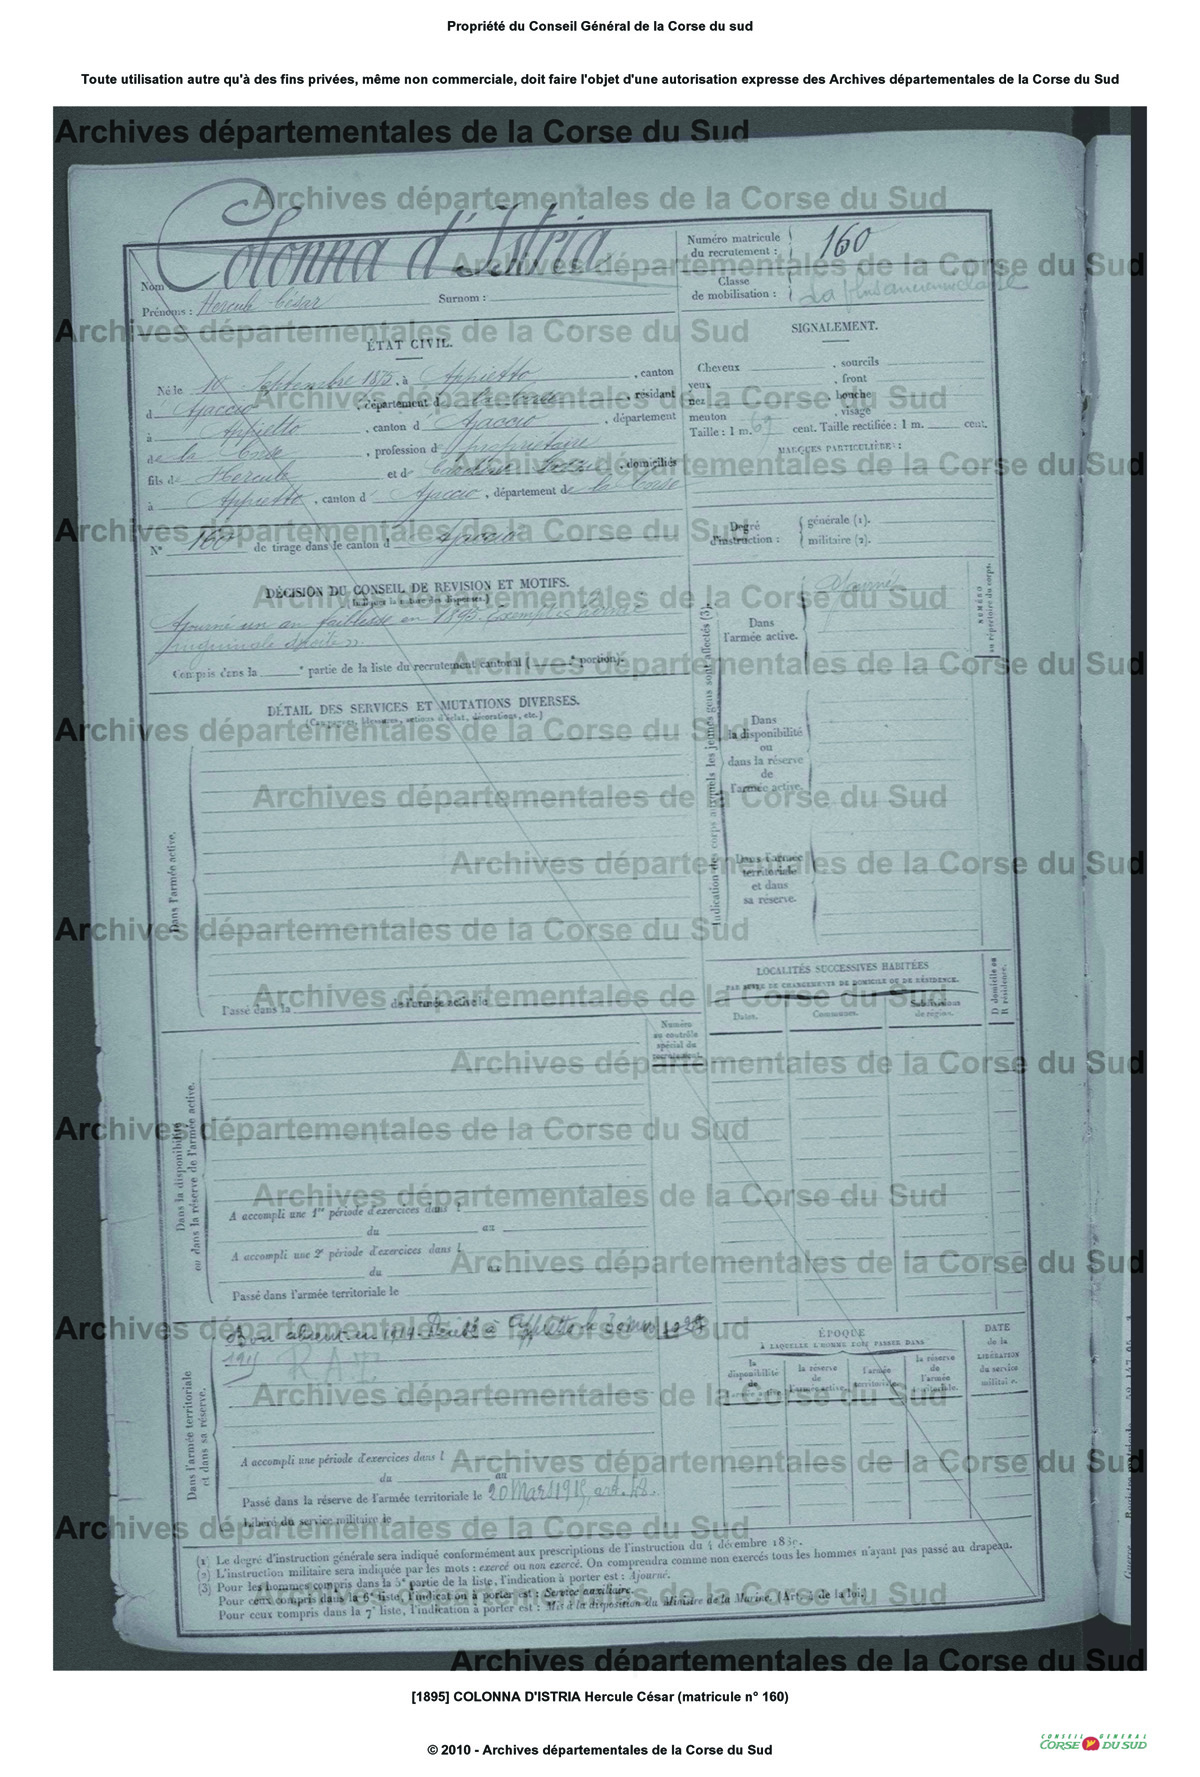 Propriété du Conseil Général de la Corse du sud
Toute utilisation autre qu'à des fins privées, même non commerciale, doit faire l'objet d'une autorisation expresse des Archives départementales de la Corse du Sud
Archives départementales de la Corse du Sud
Colonna d'Istria
Nom
Prénoms : Hercule César Surnom :
Numéro matricule du recrutement : 160
Classe de mobilisation : La plus ancienne classe
ÉTAT CIVIL.
Né le 10 Septembre 187 , à Appietto , canton
d Ajaccio , département d la Corse , résidant
à Appietto , canton d Ajaccio , département
de la Corse , profession d propriétaire
fils de Hercule et de , domiciliés
à Appietto , canton d Ajaccio , département de la Corse
N° 160 de tirage dans le canton d Ajaccio
SIGNALEMENT.
Cheveux , sourcils
yeux , front
nez , bouche
menton , visage
Taille : 1 m. 67 cent. Taille rectifiée : 1 m. cent.
MARQUES PARTICULIÈRES :
Degré d'instruction : générale (1).
militaire (2).
DÉCISION DU CONSEIL DE REVISION ET MOTIFS.
Ajourné un an faiblesse en 1895. Exempté hernie
inguinale droite
Compris dans la e partie de la liste du recrutement cantonal ( e portion).
DÉTAIL DES SERVICES ET MUTATIONS DIVERSES.
(Campagnes, blessures, actions d'éclat, décorations, etc.)
Dans l'armée active.
Passé dans la de l'armée active le
Indication des corps auxquels les jeunes gens sont affectés (3).
Dans l'armée active. Ajourné
NUMÉRO au répertoire du corps.
Dans la disponibilité ou dans la réserve de l'armée active.
Dans l'armée territoriale et dans sa réserve.
LOCALITÉS SUCCESSIVES HABITÉES
PAR SUITE DE CHANGEMENTS DE DOMICILE OU DE RÉSIDENCE.
Dates. Communes. Subdivisions de région. D domicile ou R résidence.
Numéro au contrôle spécial du recrutement.
Dans la disponibilité ou dans la réserve de l'armée active.
A accompli une 1re période d'exercices dans l
du au
A accompli une 2e période d'exercices dans l
du au
Passé dans l'armée territoriale le
Dans l'armée territoriale et dans sa réserve.
Bon absent en 1914. à Appietto le
1915 R.A.T.
A accompli une période d'exercices dans l
du au
Passé dans la réserve de l'armée territoriale le 20 Mars 1915, art. 48.
Libéré du service militaire le
ÉPOQUE
À LAQUELLE L'HOMME DOIT PASSER DANS
la disponibilité de l'armée active. la réserve de l'armée active. l'armée territoriale. la réserve de l'armée territoriale.
DATE de la LIBÉRATION du service militaire.
(1) Le degré d'instruction générale sera indiqué conformément aux prescriptions de l'instruction du 4 décembre 18
(2) L'instruction militaire sera indiquée par les mots : exercé ou non exercé. On comprendra comme non exercés tous les hommes n'ayant pas passé au drapeau.
(3) Pour les hommes compris dans la 5e partie de la liste, l'indication à porter est : Ajourné.
Pour ceux compris dans la 6e liste, l'indication à porter est : Service auxiliaire.
Pour ceux compris dans la 7e liste, l'indication à porter est : Mis à la disposition du Ministre de la Marine. (Art. 4 de la loi.)
[1895] COLONNA D'ISTRIA Hercule César (matricule n° 160)
CONSEIL GENERAL
CORSE DU SUD
© 2010 - Archives départementales de la Corse du Sud